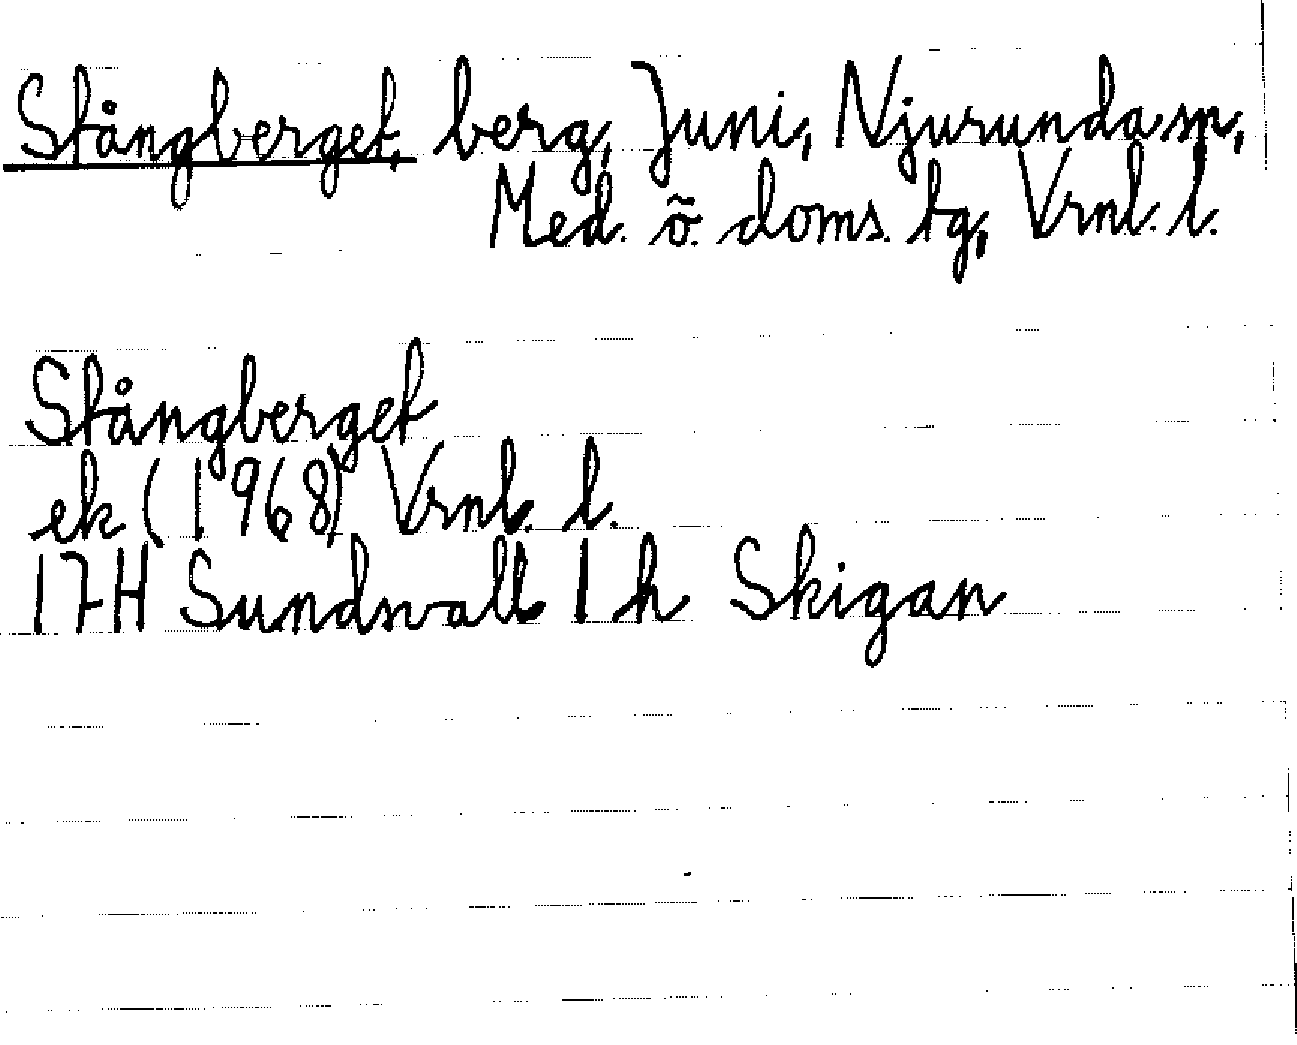 Stångberget, berg, Juni, Njurunda sn,
Med. ö. doms. tg, Vrnl. l.
Stångberget
ek (1968) Vrnl. l.
17H Sundsvall 1 h Skigan